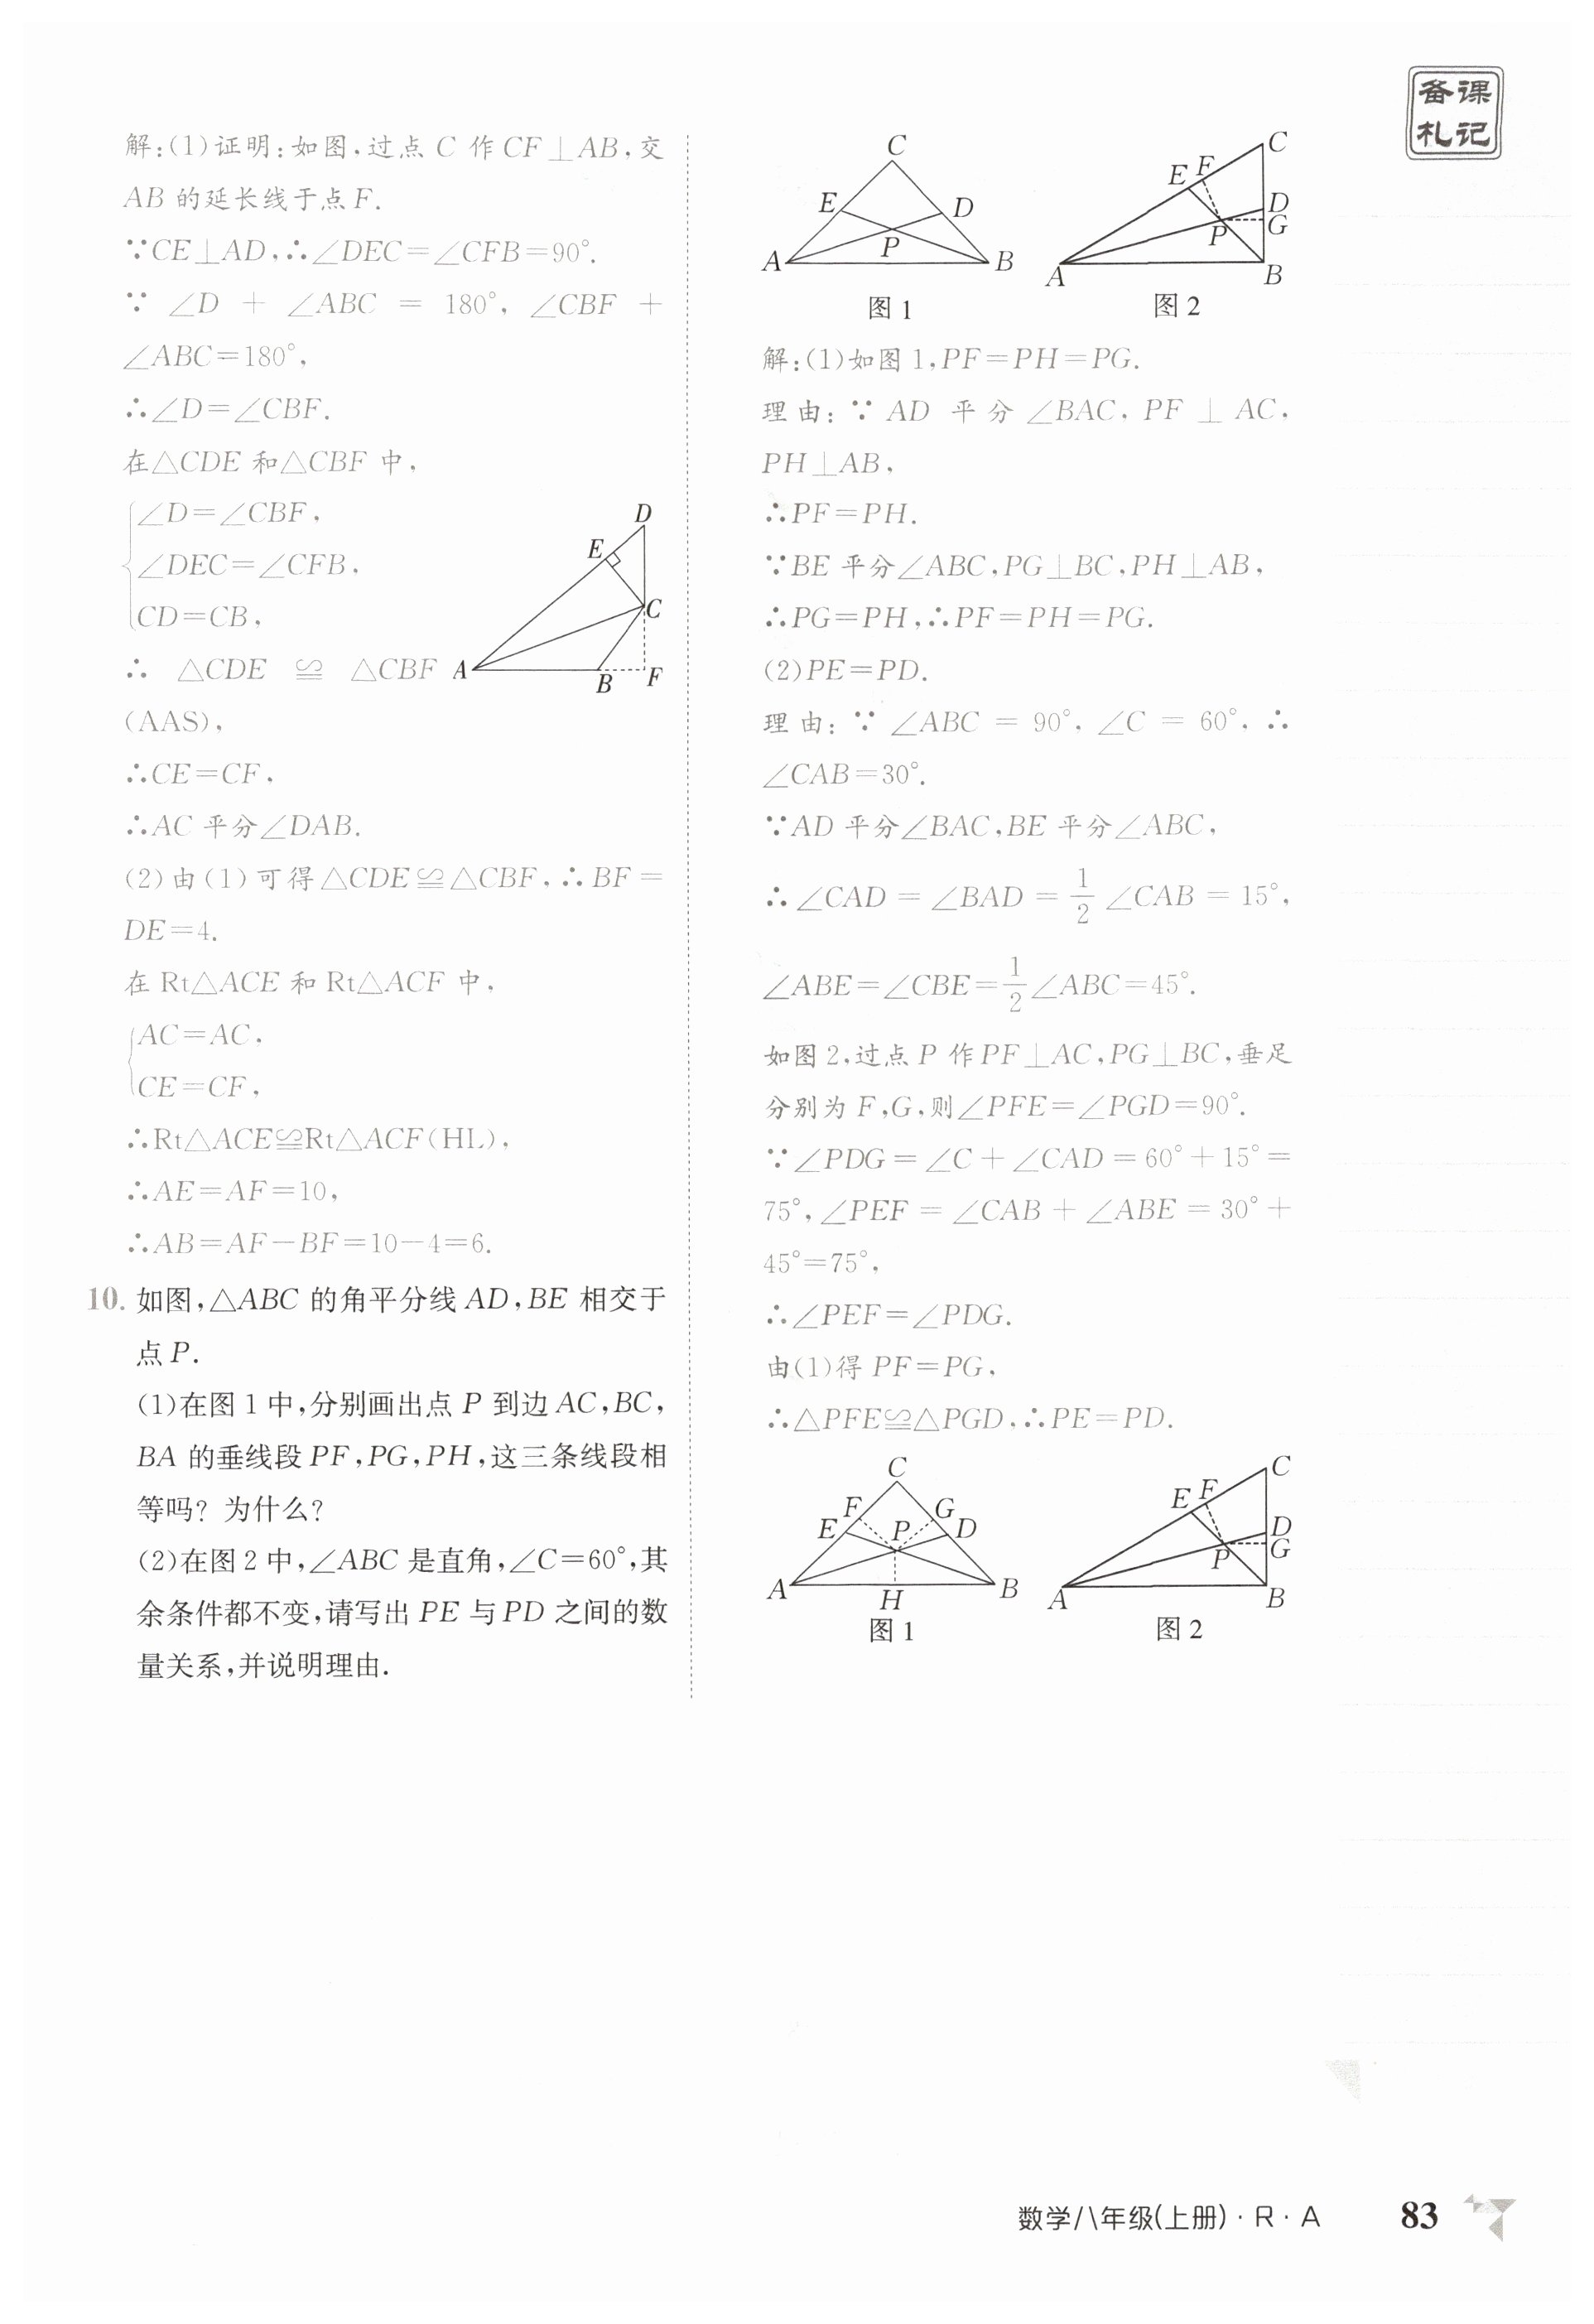 备课
札记
解:(1)证明:如图,过点 C 作 CF⊥AB,交
AB 的延长线于点 F.
∵CE⊥AD,∴∠DEC=∠CFB=90°.
∵ ∠D + ∠ABC = 180°, ∠CBF +
∠ABC=180°,
∴∠D=∠CBF.
在△CDE 和△CBF 中,
∠D=∠CBF,
∠DEC=∠CFB,
CD=CB,
∴ △CDE ≌ △CBF
(AAS),
∴CE=CF,
∴AC 平分∠DAB.
D
E
C
A
B
F
(2)由(1)可得△CDE≌△CBF,∴BF=
DE=4.
在 Rt△ACE 和 Rt△ACF 中,
AC=AC,
CE=CF,
∴Rt△ACE≌Rt△ACF(HL),
∴AE=AF=10,
∴AB=AF-BF=10-4=6.
10. 如图,△ABC 的角平分线 AD,BE 相交于
点 P.
(1)在图 1 中,分别画出点 P 到边 AC,BC,
BA 的垂线段 PF,PG,PH,这三条线段相
等吗? 为什么?
(2)在图 2 中,∠ABC 是直角,∠C=60°,其
余条件都不变,请写出 PE 与 PD 之间的数
量关系,并说明理由.
C
E
D
P
A
B
图 1
C
E F
D
P G
A
B
图 2
解:(1)如图 1,PF=PH=PG.
理由: ∵ AD 平分 ∠BAC, PF ⊥ AC,
PH⊥AB,
∴PF=PH.
∵BE 平分∠ABC,PG⊥BC,PH⊥AB,
∴PG=PH,∴PF=PH=PG.
(2)PE=PD.
理由: ∵ ∠ABC = 90°, ∠C = 60°, ∴
∠CAB=30°.
∵AD 平分∠BAC,BE 平分∠ABC,
∴ ∠CAD = ∠BAD = 1/2 ∠CAB = 15°,
∠ABE=∠CBE=1/2∠ABC=45°.
如图 2,过点 P 作 PF⊥AC,PG⊥BC,垂足
分别为 F,G,则∠PFE=∠PGD=90°.
∵∠PDG=∠C+∠CAD=60°+15°=
75°,∠PEF = ∠CAB + ∠ABE = 30° +
45°=75°,
∴∠PEF=∠PDG.
由(1)得 PF=PG,
∴△PFE≌△PGD,∴PE=PD.
C
F G
E P D
A
H
B
图 1
C
E F
D
P G
A
B
图 2
数学/八年级(上册)·R·A 83